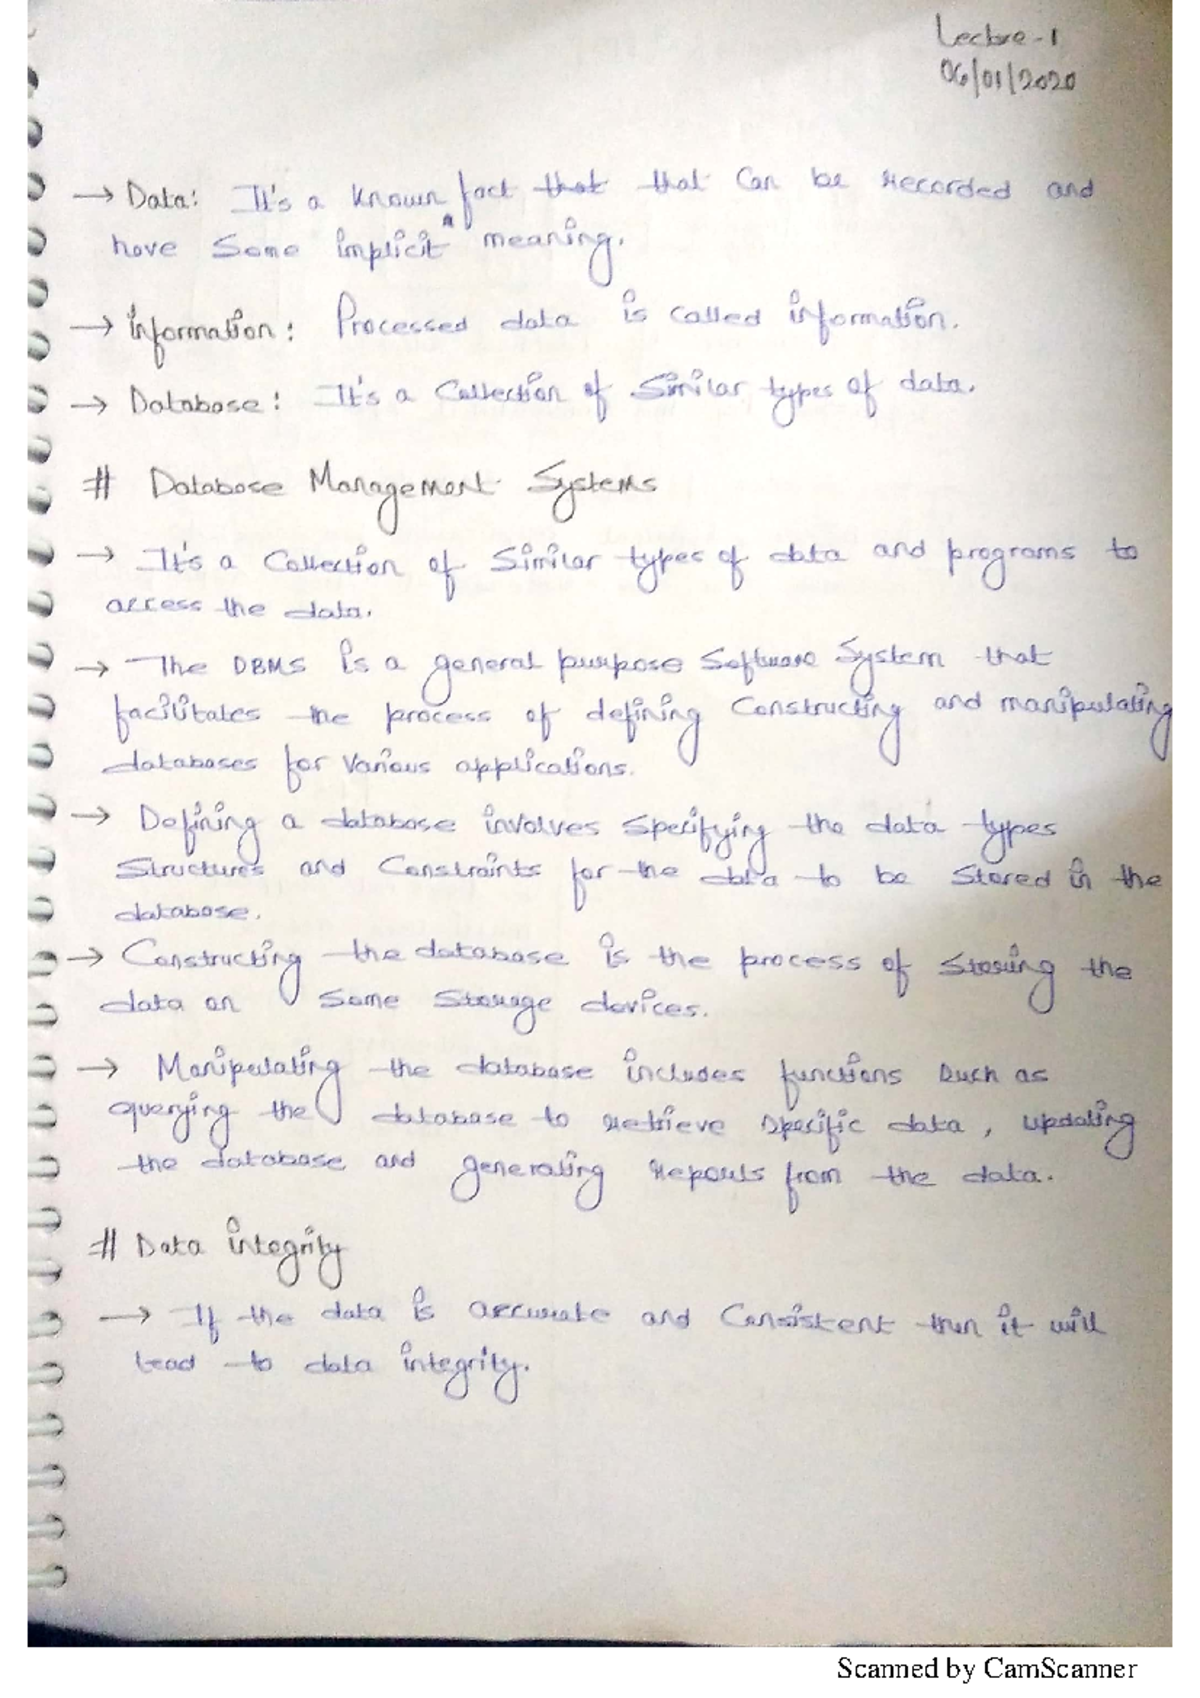 Lecture-1
06/01/2020
→ Data: It's a known fact that that can be recorded and
have some implicit meaning.
→ Information: Processed data is called information.
→ Database: It's a Collection of Similar types of data.
# Database Management Systems
→ It's a Collection of Similar types of data and programs to
access the data.
→ The DBMS is a general purpose Software System that
facilitates the process of defining Constructing and manipulating
databases for various applications.
→ Defining a database involves specifying the data types
structures and Constraints for the data to be stored in the
database.
→ Constructing the database is the process of storing the
data on some storage devices.
→ Manipulating the database includes functions such as
querying the database to retrieve specific data, updating
the database and generating reports from the data.
# Data integrity
→ If the data is accurate and Consistent then it will
lead to data integrity.
Scanned by CamScanner